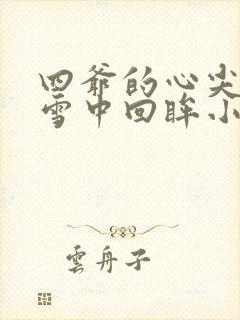 四爷的心尖
雪中回眸小
雲舟子